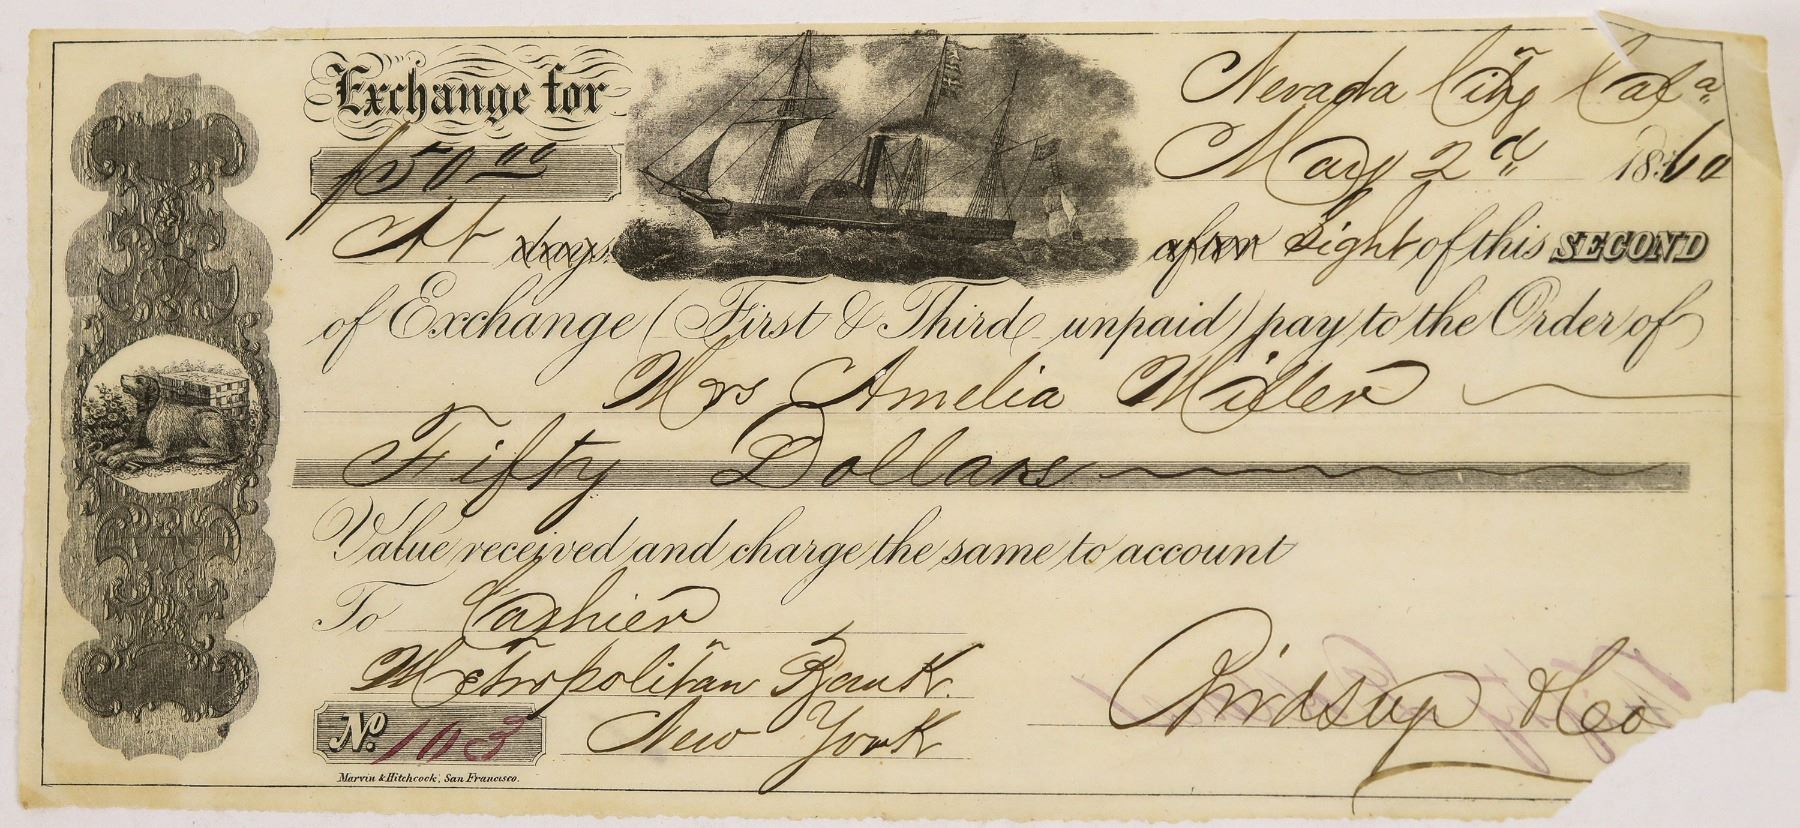 Exchange for
Nevada City Cala
$50.00
May 2d 1860
At days after Sight of this SECOND
of Exchange (First & Third unpaid) pay to the Order of
Mrs Amelia Miller
Fifty Dollars
Value received and charge the same to account
To Cashier
Metropolitan Bank
New York
& Co
No. 103
Marvin & Hitchcock, San Francisco.